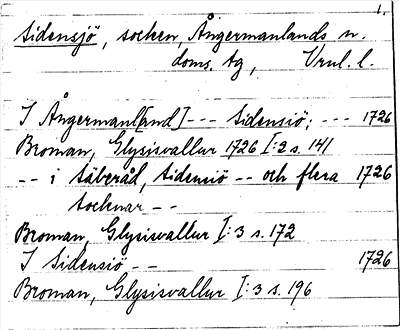 1.
Sidensjö, socken, Ångermanlands n.
doms. tg, Vrnl. l.
I Ångermanl[and] --- Sidensiö; --- 1726
Broman, Glysisvallur 1726 I:2 s. 141
-- i Säberåd, Sidensiö -- och flera 1726
Socknar --
Broman, Glysisvallur I:3 s. 172
I Sidensiö -- 1726
Broman, Glysisvallur I:3 s. 196